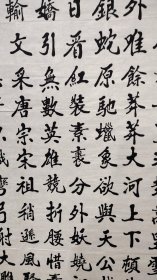 外惟餘莽莽大河上下頓
銀蛇原馳蠟象欲與天公
日看紅裝素裹分外妖嬈
嬌引無數英雄競折腰惜
輸文采唐宗宋祖稍遜風騷
弓射大雕